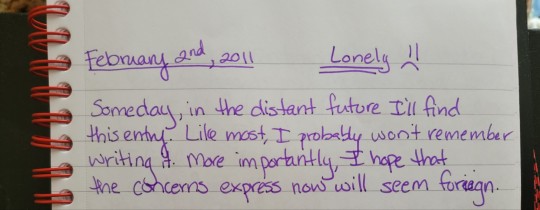 February 2nd, 2011 Lonely :(
Someday, in the distant future I'll find
this entry. Like most, I probably won't remember
writing it. More importantly, I hope that
the concerns express now will seem foreign.